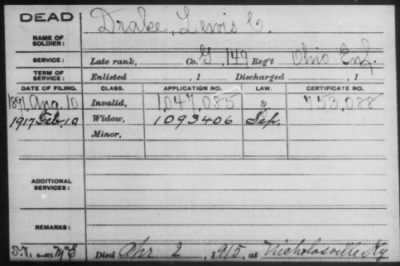 DEAD
NAME OF SOLDIER: Drake, Lewis C.
SERVICE: Late rank, Co. G, 149 Reg't Ohio Inf.
TERM OF SERVICE: Enlisted , 1 Discharged , 1
DATE OF FILING. CLASS. APPLICATION NO. LAW. CERTIFICATE NO.
1891 Aug. 10 Invalid, 1047,085 753,088
1917 Feb. 10 Widow, 1093406 Sep.
Minor,
ADDITIONAL SERVICES:
REMARKS:
Died Apr 2, 1915, at Nicholasville Ky